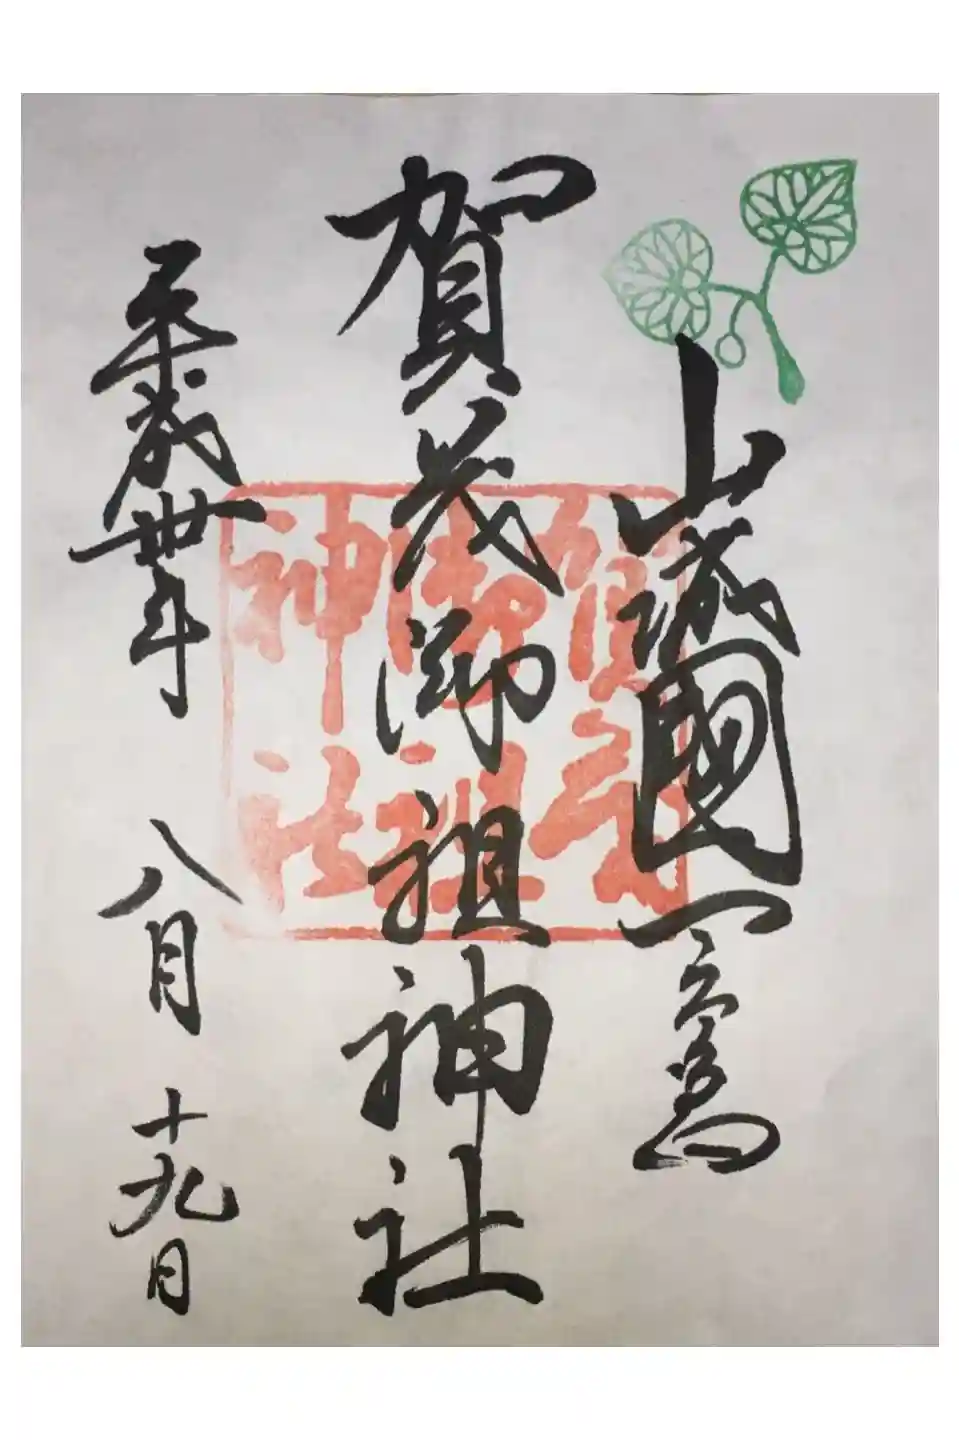 山城國一之宮
賀茂御祖神社
平成卅年 八月 十九日
賀茂
御祖
神社